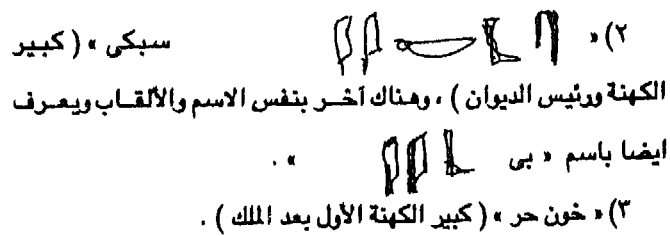 ٢) « 𓋴𓃀𓎡𓇋𓇋 سبكى » ( كبير
الكهنة ورئيس الديوان ) ، وهناك آخر بنفس الاسم والألقاب ويعرف
ايضا باسم « بى 𓃀𓇋𓇋 » .
٣) « خون حر » ( كبير الكهنة الأول بعد الملك ) .